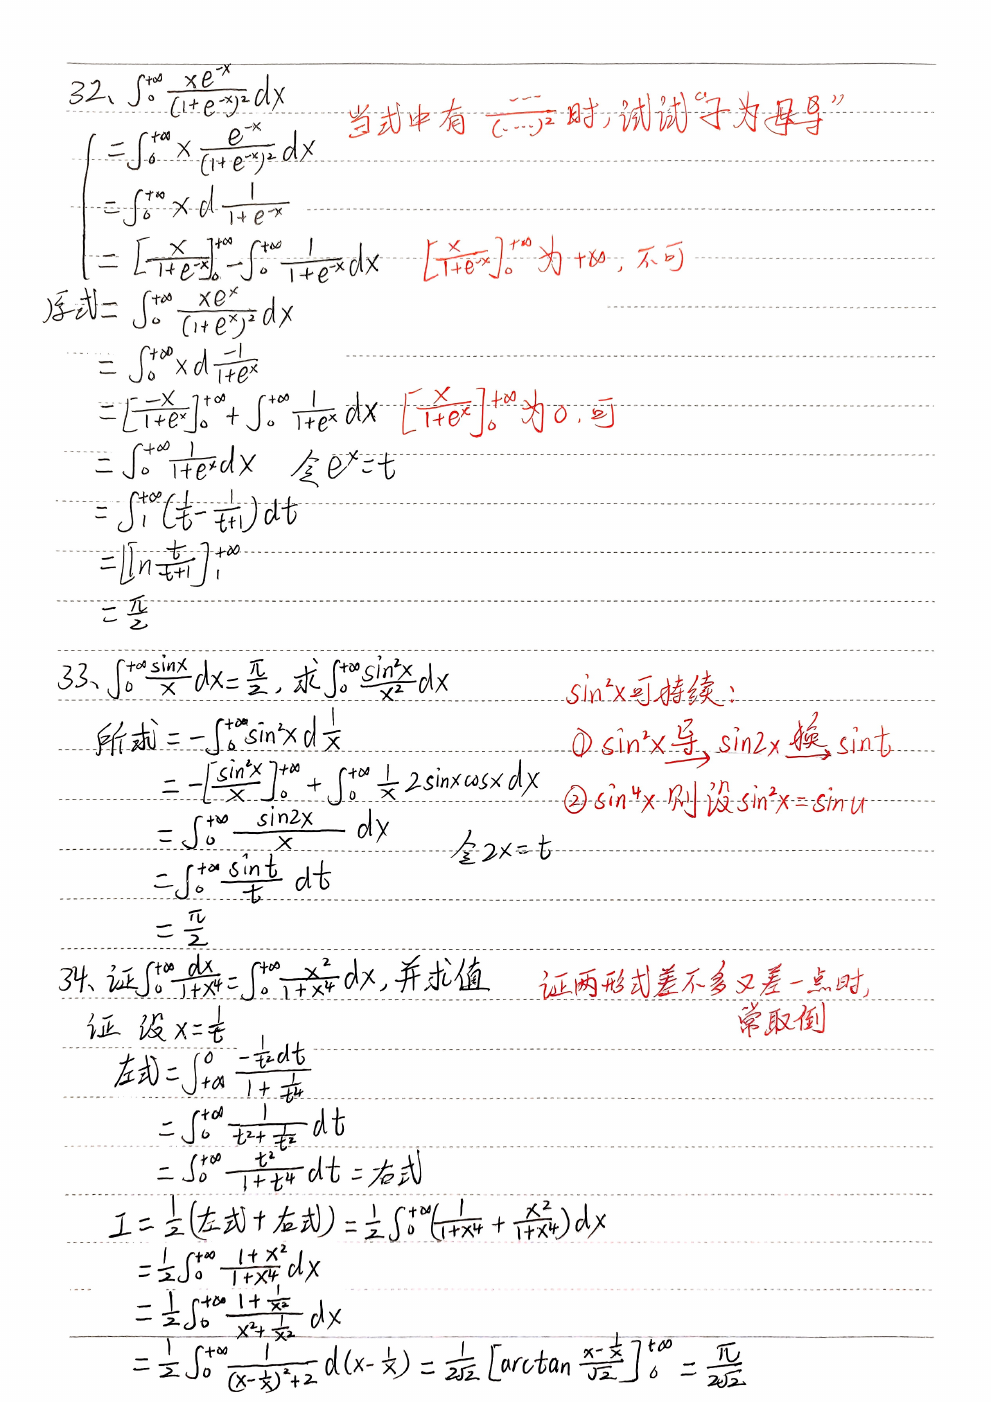 32、∫₀^{+∞} xe^{-x}/(1+e^{-x})² dx
当式中有 ……/(……)² 时,试试“子为母导”
= ∫₀^{+∞} x e^{-x}/(1+e^{-x})² dx
= ∫₀^{+∞} x d 1/(1+e^{-x})
= [x/(1+e^{-x})]₀^{+∞} - ∫₀^{+∞} 1/(1+e^{-x}) dx [x/(1+e^{-x})]₀^{+∞} 为 +∞, 不可
原式 = ∫₀^{+∞} xe^x/(1+e^x)² dx
= ∫₀^{+∞} x d -1/(1+e^x)
= [-x/(1+e^x)]₀^{+∞} + ∫₀^{+∞} 1/(1+e^x) dx [x/(1+e^x)]₀^{+∞} 为 0, 可
= ∫₀^{+∞} 1/(1+e^x) dx 令 e^x = t
= ∫₁^{+∞} (1/t - 1/(t+1)) dt
= [ln t/(t+1)]₁^{+∞}
= π/2
33、∫₀^{+∞} sinx/x dx = π/2, 求 ∫₀^{+∞} sin²x/x² dx
sin²x可持续:
所求 = -∫₀^{+∞} sin²x d 1/x
① sin²x 导→ sin2x 换→ sint
= -[sin²x/x]₀^{+∞} + ∫₀^{+∞} 1/x 2sinxcosx dx
② sin⁴x 则设 sin²x = sin u
= ∫₀^{+∞} sin2x/x dx 令 2x = t
= ∫₀^{+∞} sint/t dt
= π/2
34、证 ∫₀^{+∞} dx/(1+x⁴) = ∫₀^{+∞} x²/(1+x⁴) dx, 并求值
证两形式差不多又差一点时,
常取倒
证 设 x = 1/t
左式 = ∫_{+∞}^0 (-1/t² dt)/(1 + 1/t⁴)
= ∫₀^{+∞} 1/(t² + 1/t²) dt
= ∫₀^{+∞} t²/(1+t⁴) dt = 右式
I = 1/2 (左式 + 右式) = 1/2 ∫₀^{+∞} (1/(1+x⁴) + x²/(1+x⁴)) dx
= 1/2 ∫₀^{+∞} (1+x²)/(1+x⁴) dx
= 1/2 ∫₀^{+∞} (1 + 1/x²)/(x² + 1/x²) dx
= 1/2 ∫₀^{+∞} 1/((x - 1/x)² + 2) d(x - 1/x) = 1/(2√2) [arctan (x - 1/x)/√2]₀^{+∞} = π/(2√2)